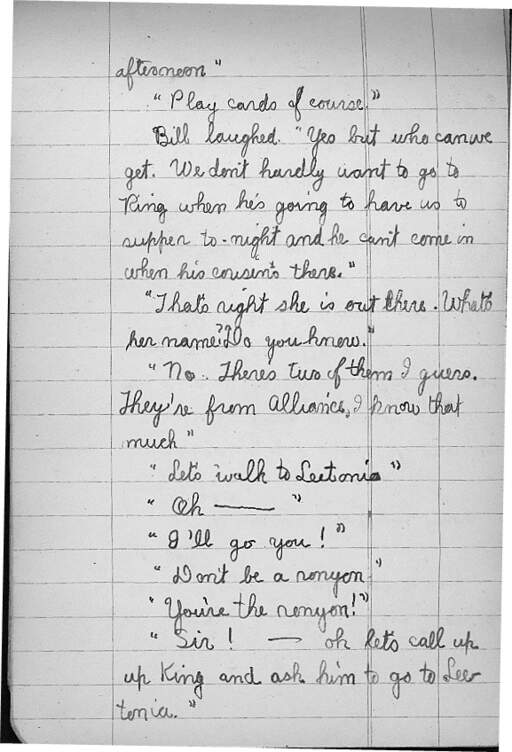 afternoon"
"Play cards of course."
Bill laughed. "Yes but who can we
get. We don't hardly want to go to
King when he's going to have us to
supper to-night and he can't come in
when his cousin's there."
"That's right she is out there. What's
her name? Do you know."
"No. There's two of them I guess.
They're from Alliance, I know that
much"
"Let's walk to Leetonia"
"Oh —— "
"I'll go you!"
"Don't be a ronyon"
"You're the ronyon!"
"Sir! — oh let's call up
up King and ask him to go to Lee
tonia."